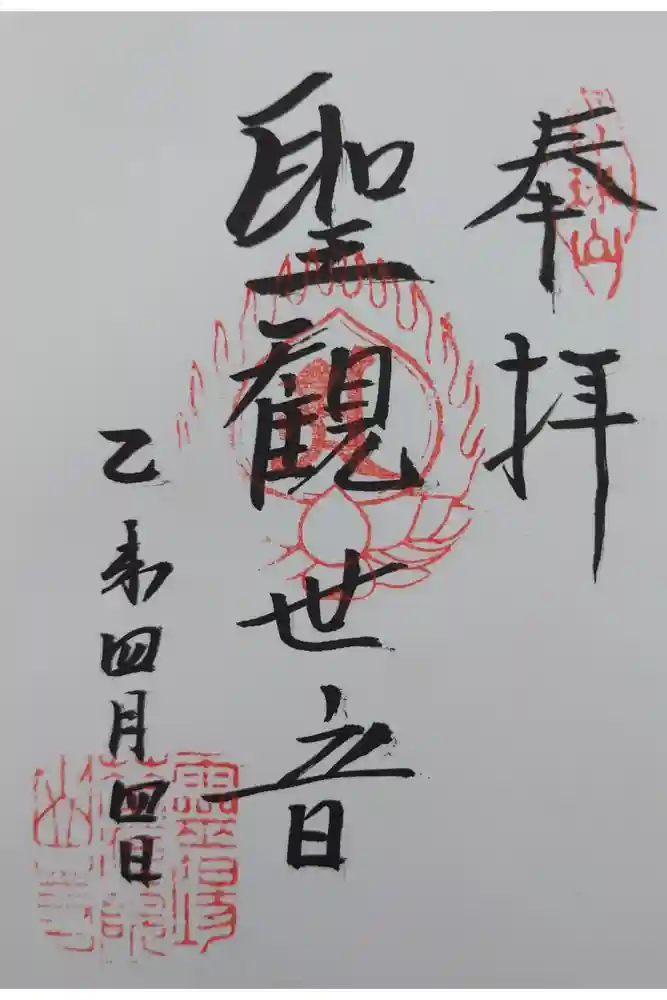 奉拝
聖観世音
乙未四月四日